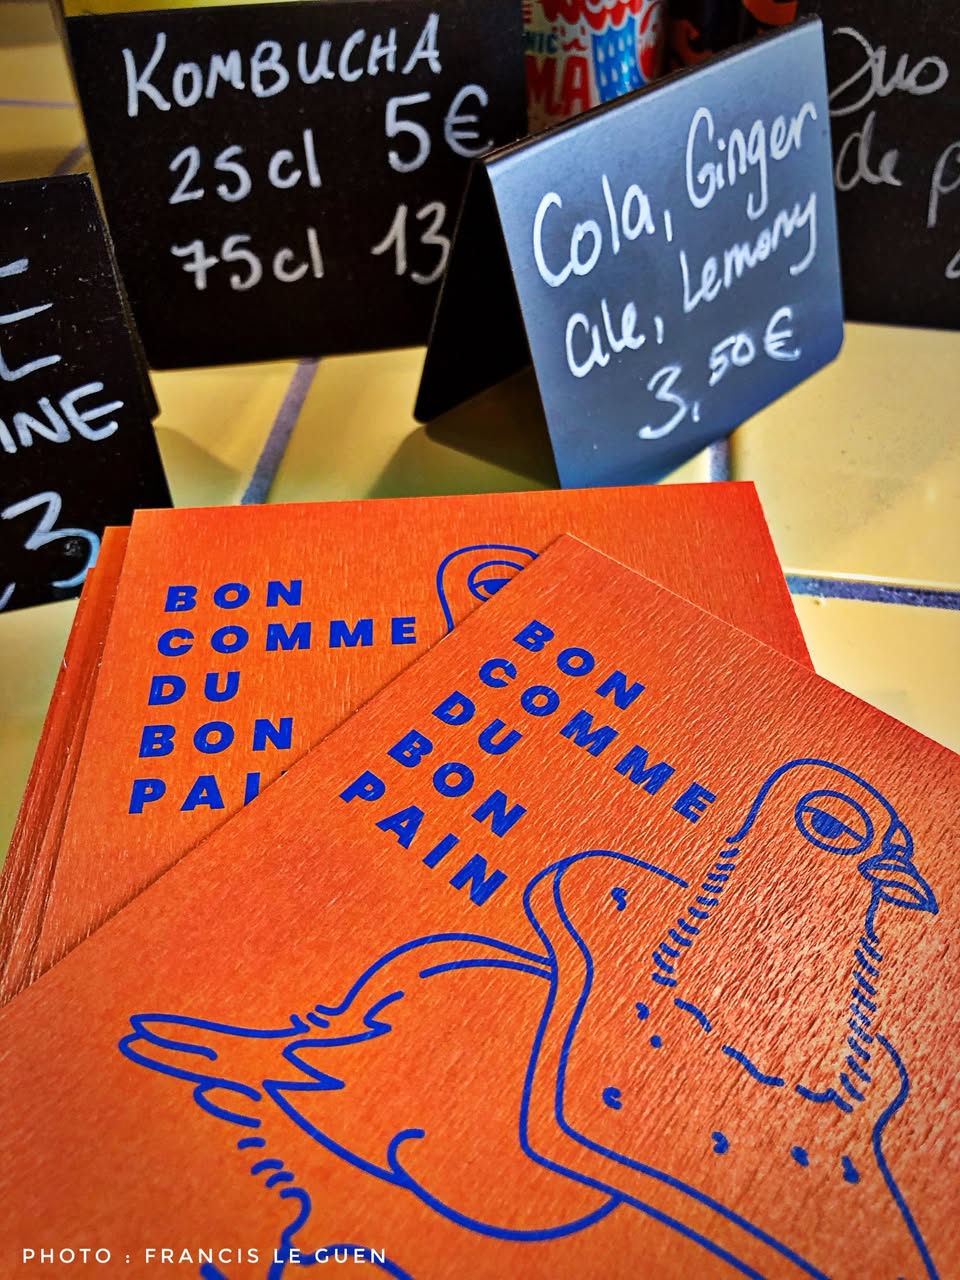 KOMBUCHA
25cl 5€
75cl 13
MA
Cola, Ginger
ale, Lemony
3,50€
Duo
de p
INE
3
BON
COMME
DU
BON
PAI
BON
COMME
DU
BON
PAIN
PHOTO : FRANCIS LE GUEN